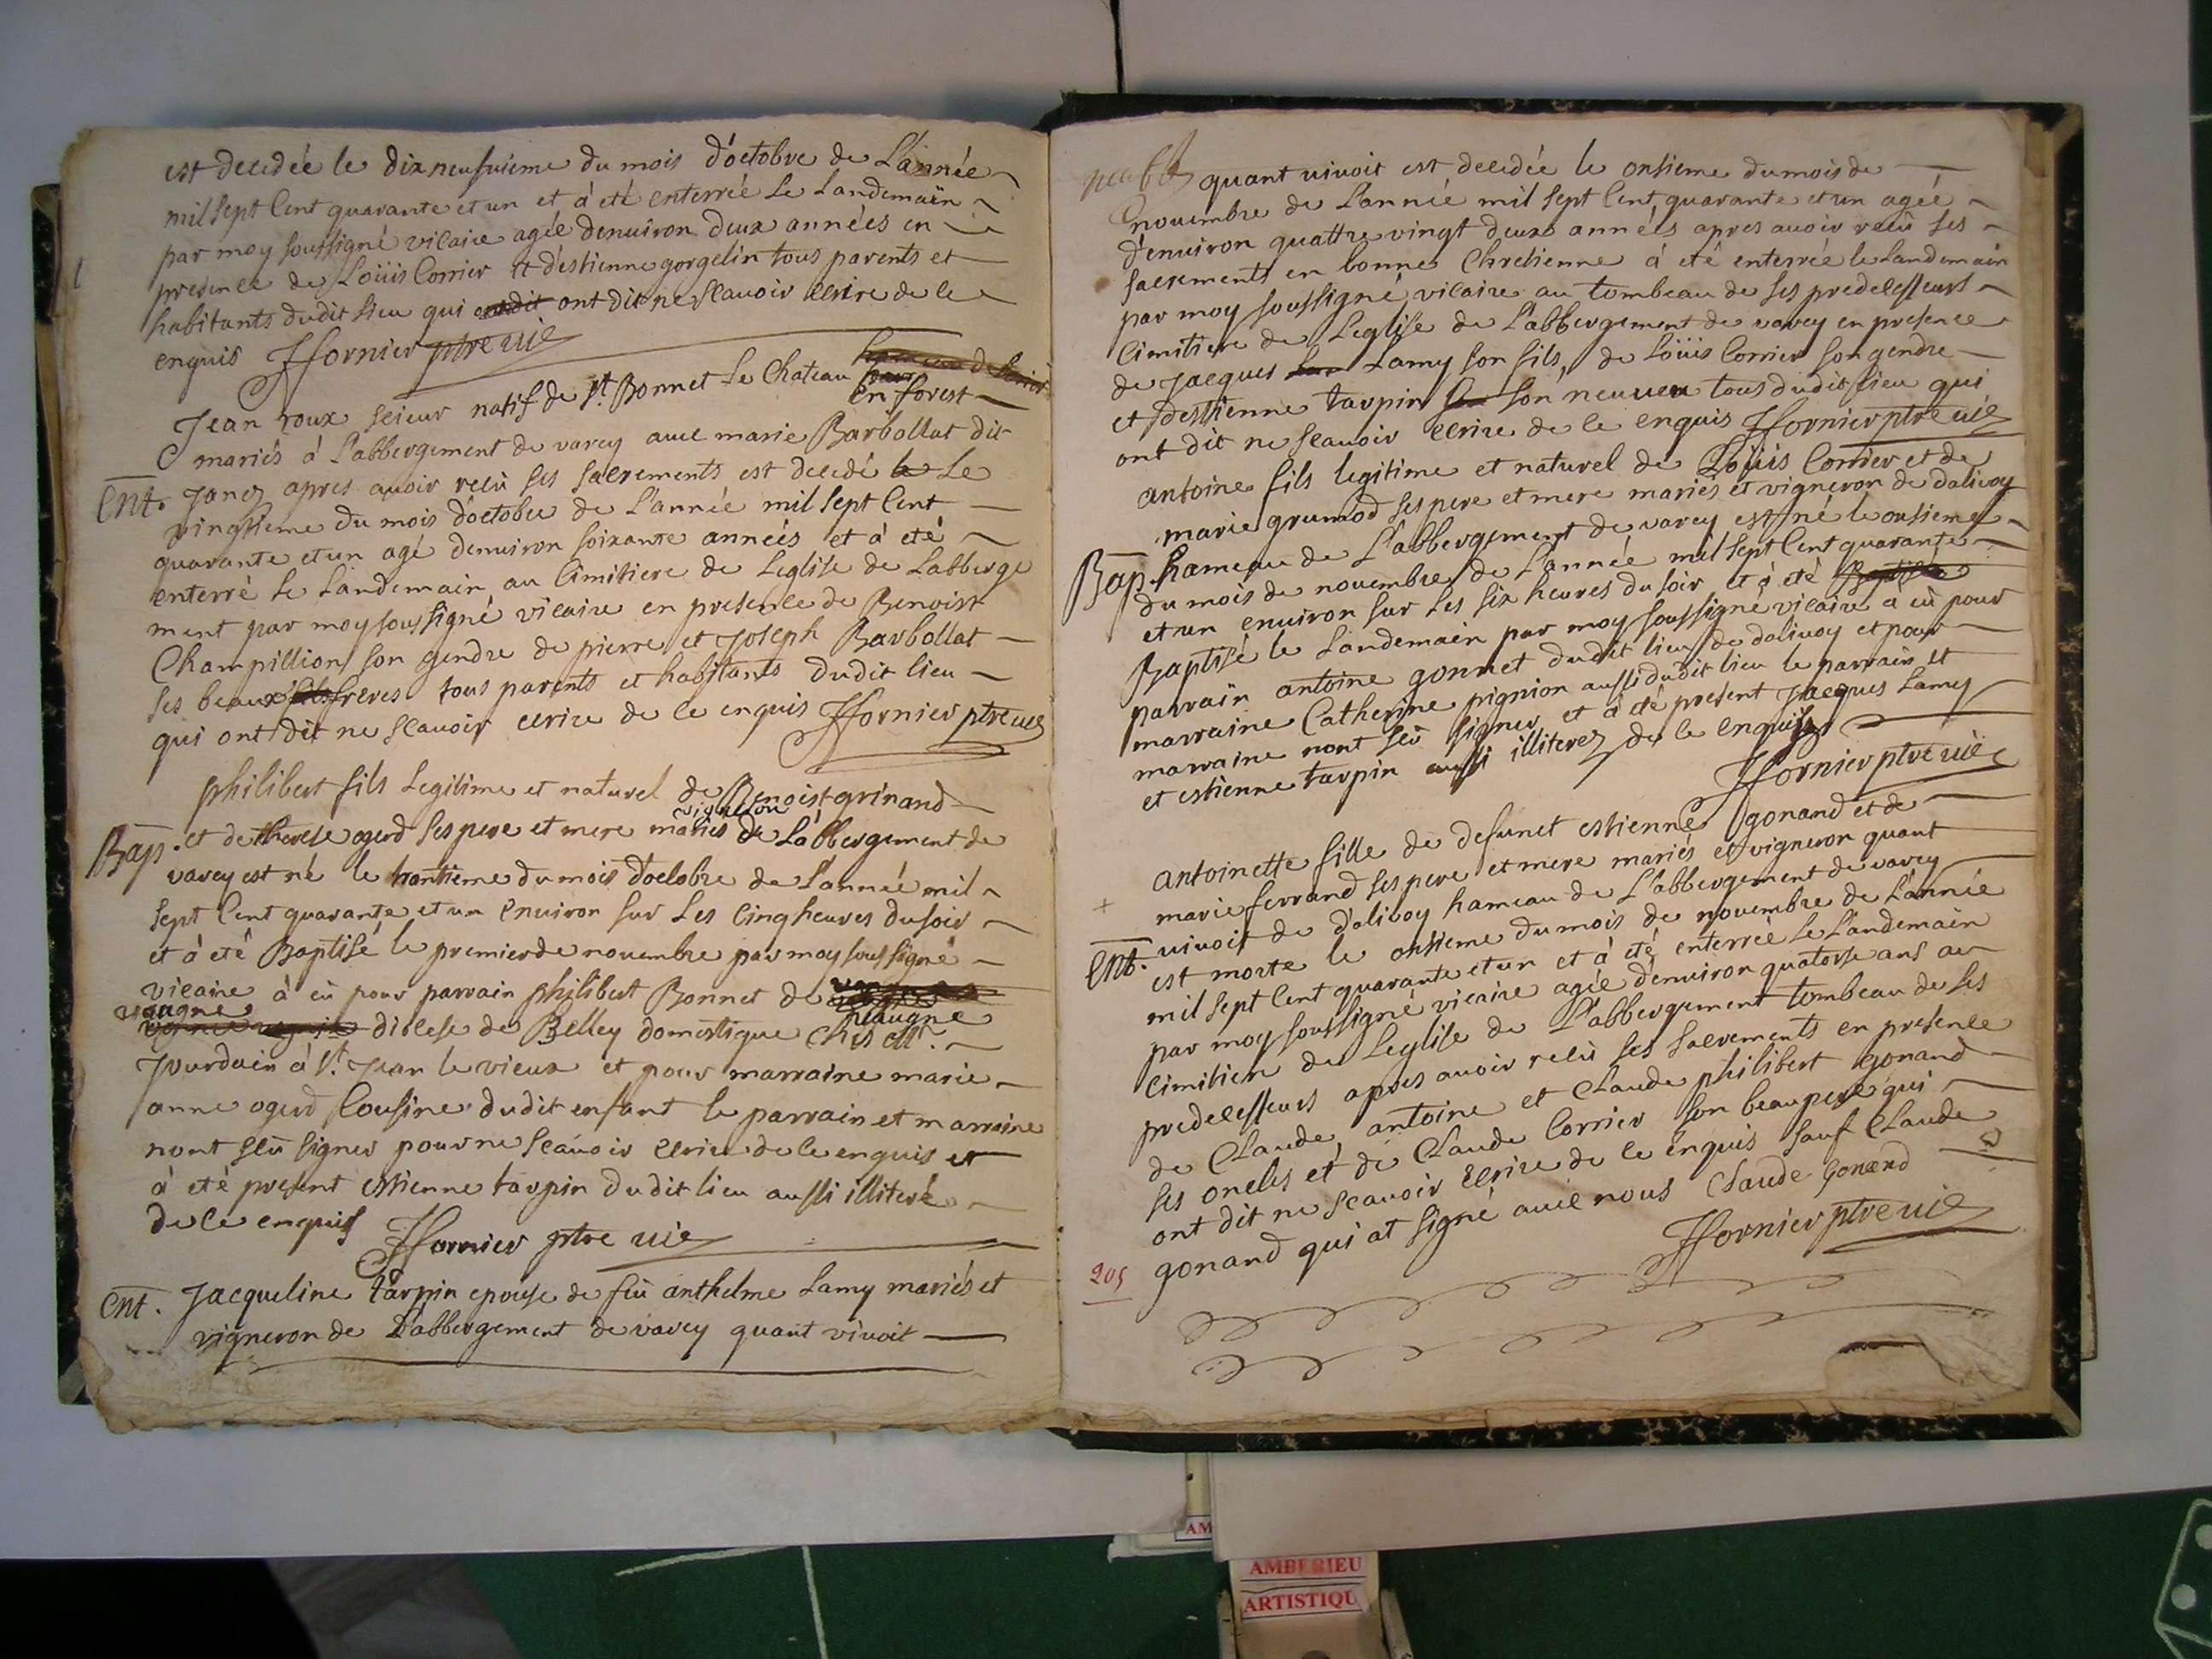 est decedée le dix neufuieme du mois d'octobre de L'année
mil sept Cent quarante et un et à eté enterrée Le Landemain
par moy soussigné vicaire agée denuiron deux années en
presence de Loüis Corrier et d'estienne gorgelin tous parents et
habitants dudit lieu qui ont dit ne scauoir ecrire de ce
enquis JJornier ptre vic
Jean roux scieur natif de st. Bonnet Le Chateau
en forest
mariés à L'abbergement de varey auec marie Barbollat dit
Ent. Janez apres auoir recû ses sacrements est decedé Le
vingtieme du mois d'octobre de L'année mil sept Cent
quarante et un agé denuiron soixante années et à eté
enterré Le Landemain au Cimitiere de Leglise de Labberge
ment par moy soussigné vicaire en presence de Benoist
Champillion son gendre de pierre et Joseph Barbollat
ses beaux freres tous parents et habitants dudit lieu
qui ont dit ne scauoir ecrire de ce enquis JJornier ptre vic
philibert fils Legitime et naturel de Benoist grinand
vigneron
Bap. et de therese ogerd ses pere et mere mariés de L'abbergement de
varey est né le trantieme du mois d'octobre de L'année mil
sept Cent quarante et un enuiron sur Les Cinq heures du soir
et à eté Baptisé le premier de nouembre par moy soussigné
vicaire à eû pour parrain philibert Bonnet de
diocese de Belley domestique Chés
Jourdain à st. Jean le vieux et pour marraine marie
anne ogerd Cousine dudit enfant le parrain et marraine
n'ont sçû signer pour ne scauoir ecrire de ce enquis et
à eté present estienne tarpin dudit lieu aussi illiteré
de ce enquis JJornier ptre vic
Ent. Jacqueline tarpin epouse de feû anthelme Lamy mariés et
vigneron de L'abbergement de varey quant viuoit
quant viuoit est decedée le onsieme du mois de
nouembre de L'année mil sept Cent quarante et un agée
d'enuiron quattre vingt deux années apres auoir recû ses
sacrements en bonne Chretienne à eté enterrée le Landemain
par moy soussigné vicaire au tombeau de ses predecesseurs
Cimitiere de Leglise de L'abbergement de varey en presence
de Jacques Lamy son fils, de Loüis Corrier son gendre
et d'estienne tarpin son neuueu tous dudit lieu qui
ont dit ne scauoir ecrire de ce enquis JJornier ptre vic
antoine fils legitime et naturel de Loüis Corrier et de
marie grumod ses pere et mere mariés et vigneron de dalivoy
Bap. hameau de L'abbergement de varey est né le onsieme
du mois de nouembre de L'année mil sept Cent quarante
et un enuiron sur Les six heures du soir et à eté
Baptisé le Landemain par moy soussigné vicaire à eû pour
parrain antoine gonnet dudit lieu de dalivoy et pour
marraine Catherine pignion aussi dudit lieu le parrain et
marraine n'ont sçû signer et à eté present Jacques Lamy
et estienne tarpin aussi illiterez de ce enquis
JJornier ptre vic
antoinette fille de defunct estienne gonand et de
marie ferrand ses pere et mere mariés et vigneron quant
Ent. viuoit de d'alivoy hameau de L'abbergement de varey
est morte le onsieme du mois de nouembre de L'année
mil sept Cent quarante et un et à eté enterrée Le Landemain
par moy soussigné vicaire agée d'enuiron quatorse ans au
Cimitiere de Leglise de L'abbergement tombeau de ses
predecesseurs apres auoir recû ses sacrements en presence
de Claude, antoine et Claude philibert gonand
ses oncles et de Claude Corrier son beaupere qui
ont dit ne scauoir Ecrire de ce enquis sauf Claude
gonand qui at signé auec nous Claude Gonand
205 JJornier ptre vic
AMBERIEU
ARTISTIQU